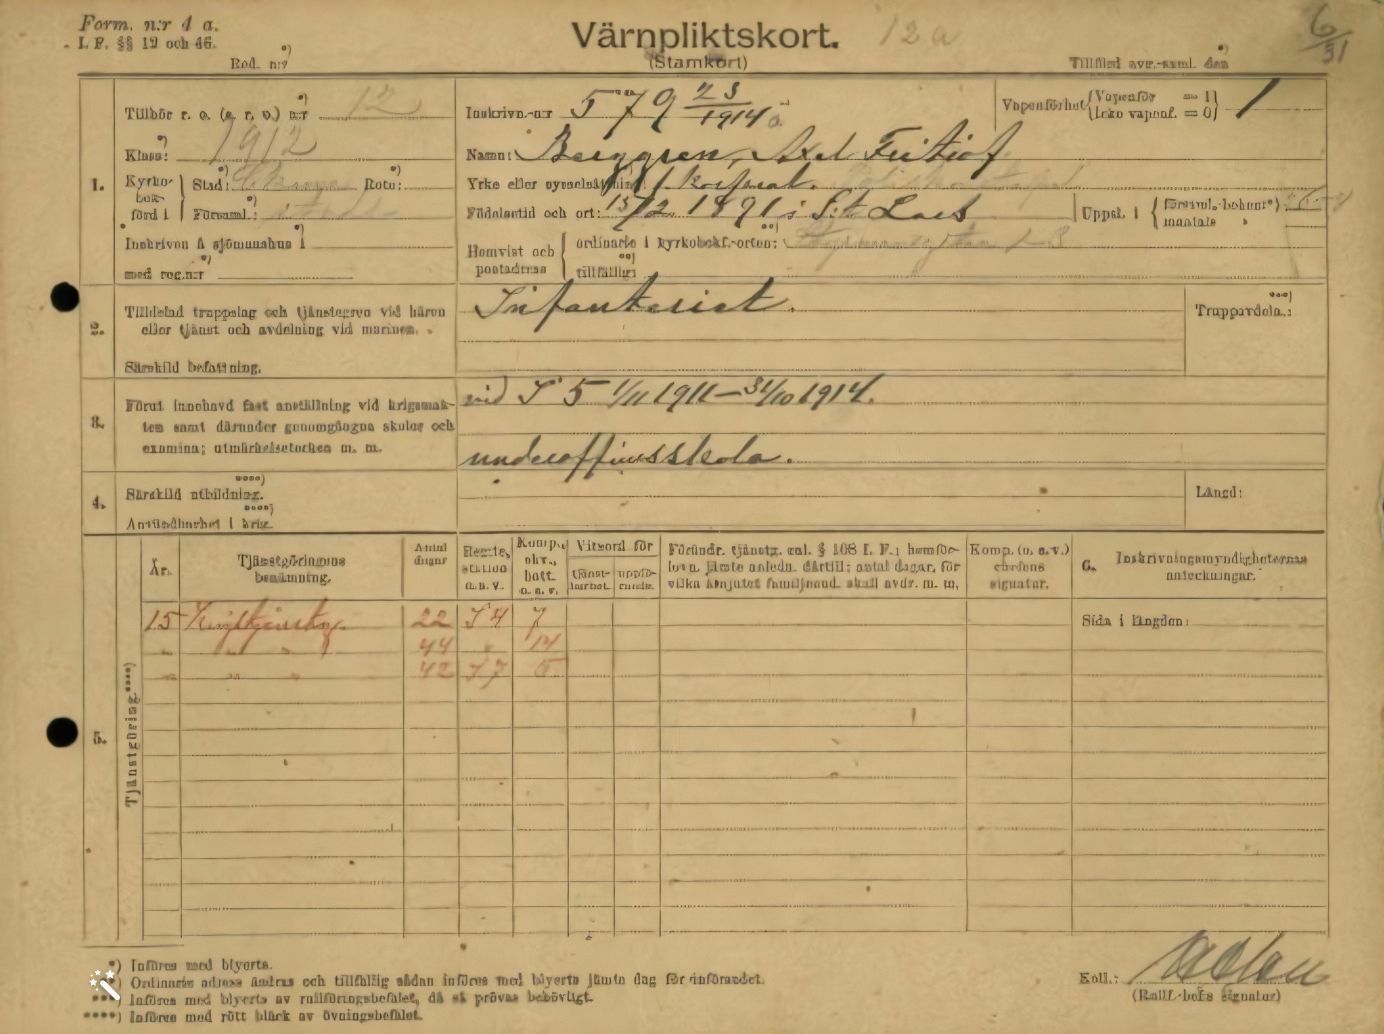 Form. n:r 4 a.
I. F. §§ 12 och 46.
Värnpliktskort.
(Stamkort)
12a
6/31
Red. n:r *)
Tillförd avr.-saml. den *)
Tillhör r. o. (e. r. o.) n:r *) 12
Inskrivn.-n:r 579 23/1914
Vapenförhet { Vapenför = 1 } 1
Icke vapenf. = 0
Klass: *) 1912
Namn: Berggren, Axel Fritiof
1.
Kyrko-bok-förd i { Stad: *) Rote: *)
Församl.: *)
Yrke eller sysselsättning: f. korpral.
Födelsetid och ort: 15/12 1891 i S:t Lars
Uppt. i { församl.-bokens *)
mantals »
Inskriven å sjömanshus i *)
med reg.n:r *)
Hemvist och postadress { ordinarie i kyrkobokf.-orten: **)
tillfällig: **)
2.
Tilldelad truppslag och tjänstegren vid hären
eller tjänst och avdelning vid marinen.
Infanterist.
Truppavdeln.: ***)
Särskild befattning.
3.
Förut innehavd fast anställning vid krigsmak-
ten samt därunder genomgångna skolor och
examina; utmärkelsetecken m. m.
vid I 5 1/11 1911 – 31/10 1914.
underofficersskola.
4.
Särskild utbildning. ****)
Användbarhet i krig. ****)
Längd:
5.
Tjänstgöring ****)
År.
Tjänstgöringens benämning.
Antal dagar
Regte, station o. s. v.
Komp., skv., batt. o. s. v.
Vitsord för
tjänst-barhet.
uppfö-rande.
Förändr. tjänstg. enl. § 108 I. F.; hemför-
lovn. jämte anledn. därtill; antal dagar, för
vilka åtnjutet familjeund. skall avdr. m. m.
Komp. (o. s. v.) chefens signatur.
6. Inskrivningsmyndigheternas anteckningar.
15 Krigstjänstg. 22 I 4 7
Sida i längden:
" " " 44 " 14
" " " 42 I 7 5
*) Införes med blyerts.
**) Ordinarie adress ändras och tillfällig sådan införes med blyerts jämte dag för införandet.
***) Införes med blyerts av rullföringsbefälet, då så prövas behövligt.
****) Införes med rött bläck av övningsbefälet.
Koll.:
(Rullf.-befs signatur)